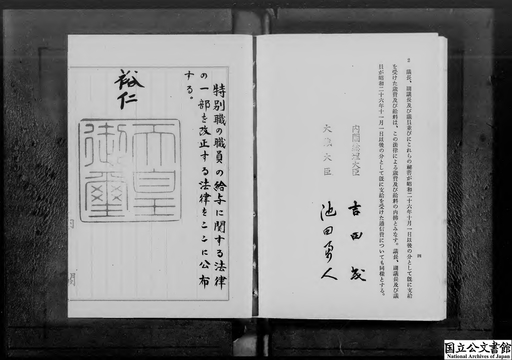 2 議長、副議長及び議員並びにこれらの秘書が昭和二十六年十月一日以後の分として既に支給
を受けた議費及び給料は、この法律による議費及び給料の内拂とみなす。議長、副議長及び議
員が昭和二十六年十一月一日以後の分として既に支給を受けた通信費についても同様とする。
内閣総理大臣 吉田茂
大蔵大臣 池田勇人
特別職の職員の給与に関する法律
の一部を改正する法律をここに公布
する。
裕仁
天皇
御璽
国立公文書館
National Archives of Japan